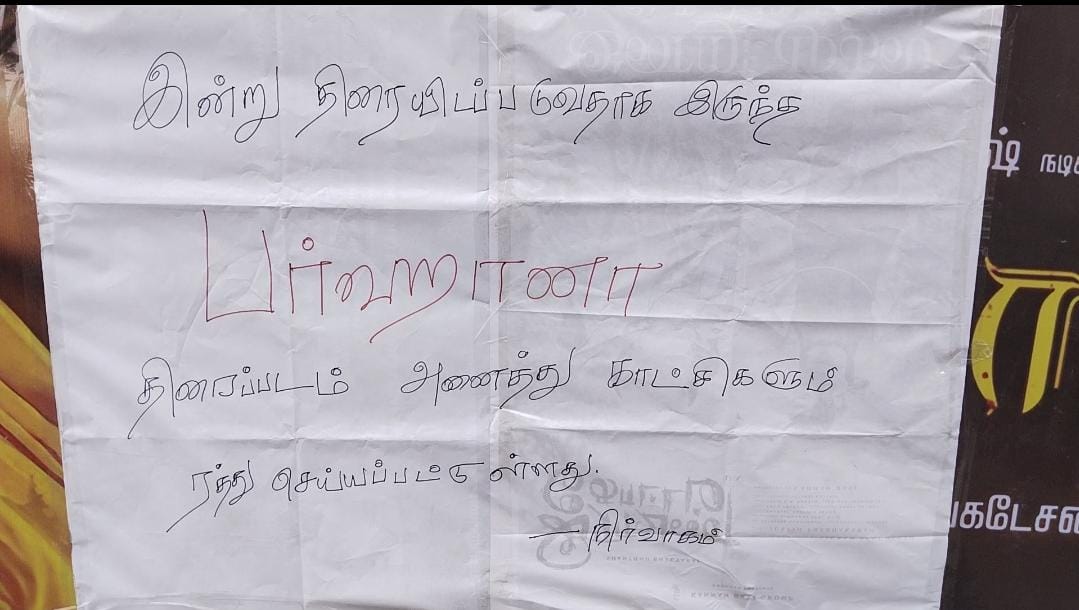 இன்று திரையிடப்படுவதாக இருந்த
பர்ஹானா
திரைப்படம் அனைத்து காட்சிகளும்
ரத்து செய்யப்பட்டுள்ளது.
— நிர்வாகம்
ஷ் நடிக